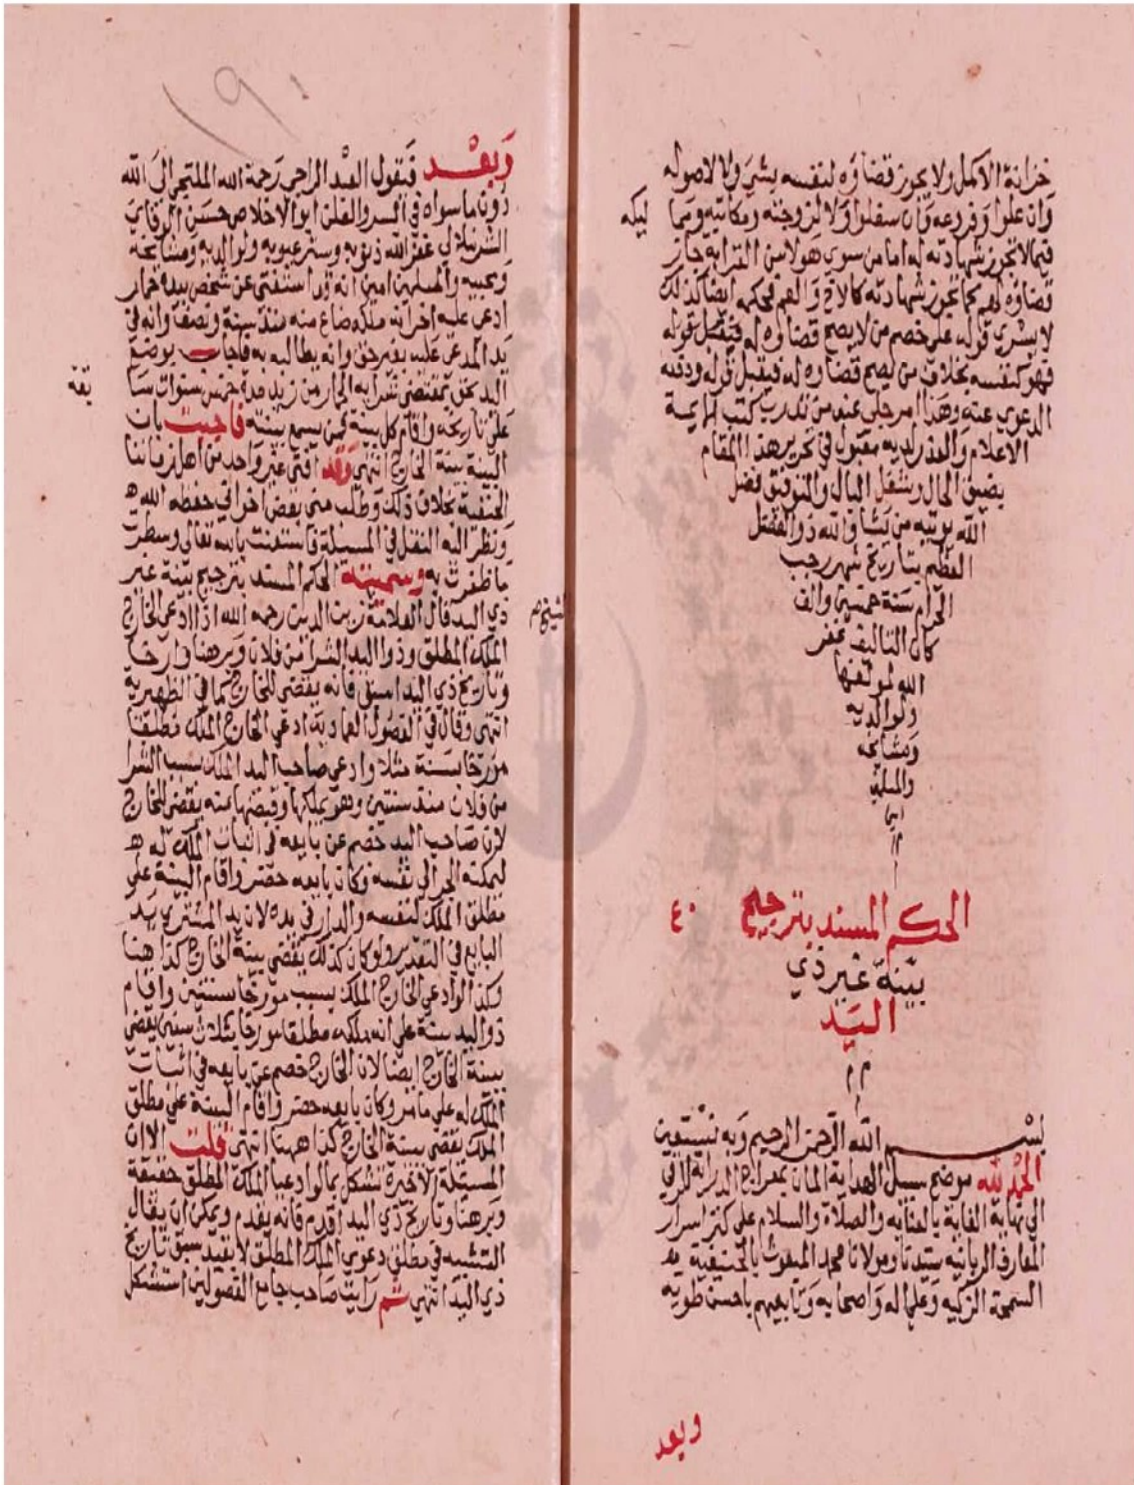 خزانة الاكمل ولا يجوز قضاؤه لنفسه بشئ ولا لاصوله
وان علوا وفروعه وان سفلوا ولا لزوجته ومكاتبه ومما
ليكه
فيمالا تجوز شهادته له اما من سوى هولا من القرابه جاز
قضاؤه لهم كما تجوز شهادته كالاخ والعم فحكمه ايضا كذلك
لا يسري قوله على خصم من لا يصح قضاؤه له فيقبل قوله
فهو كنفسه بخلاف من يصح قضاؤه له فيقبل قوله ودفعه
الدعوى عنه وهذا امر جلي عند من تدرب كتب الايمة
الاعلام والعذر لديه مقبول في تحرير هذا المقام
بضيق الحال وشغل البال والتوفيق فضل
الله يوتيه من يشا والله ذو الفضل
العظيم بتاريخ شهر رجب
الحرام سنة خمسين والف
كان التاليف غفر
الله لمولفها
ولوالديه
ومشايخه
والمسلمين
امين
م م
الحكم المسند بترجيح ٤٠
بينة غير ذي
اليد
م م
بسم الله الرحمن الرحيم وبه نستعين
الحمد لله موضح سبيل الهداية المان بمعراج الدراية للراقي
الى نهاية الغاية بالعنايه والصلاة والسلام على كنز اسرار
المعارف الربانيه سيدنا ومولانا محمد المبعوث بالحنيفية
السمحة الزكيه وعلى اله واصحابه وتابعيهم باحسن طويه
وبعد
١٩٠
وبعد فيقول العبد الراجي رحمة الله الملتجي الى الله
دون ما سواه في السر والعلن ابو الاخلاص حسن الوفاي
الشرنبلالي غفر الله ذنوبه وستر عيوبه ولوالديه ومشايخه
ومحبيه والمسلمين امين انه قد استفتى عن شخص بيده حمار
ادعى عليه اخر انه ملكه ضاع منه منذ سنة ونصف وانه في
يد المدعى عليه بغير حق وانه يطالبه به فاجاب بوضع
اليد بحق بمقتضى شرايه الحمار من زيد مدة خمس سنوات سا
بقة
على تاريخه واقام كل بينة فمن يسمع بينته فاجبت بان
البينة بينة الخارج انتهى وقد افتى غير واحد من اهل زماننا
الحنفية بخلاف ذلك وطلب مني بعض اخواني حفظه الله
ونظر اليه النقل في المسئلة فاستعنت بالله تعالى وسطرت
ما ظفرت به وسميته الحكم المسند بترجيح بينة غير
ذي اليد قال العلامة زين الدين رحمه الله اذا ادعى الخارج
الملك المطلق وذو اليد الشرا من فلان وبرهنا وارخا
وتاريخ ذي اليد اسبق فانه يقضى للخارج كما في الظهيرية
انتهى وقال في الفصول العماديه ادعى الخارج الملك مطلقا
مورخا بسنة مثلا وادعى صاحب اليد الملك بسبب الشرا
من فلان منذ سنتين وهو يملكها وقبضها منه يقضى للخارج
لان صاحب اليد خصم عن بايعه في اثبات الملك له
ليمكنه الجر الى نفسه وكان بايعه حضر واقام البينة على
مطلق الملك لنفسه والدار في يده لان يد المشتري يد
البايع في التقدير ولو كان كذلك يقضى ببينة الخارج كذا هنا
وكذا لو ادعى الخارج الملك بسبب مورخا بسنتين واقام
ذو اليد بينة على انه ملكه مطلقا مورخا بثلاث سنين يقضى
ببينة الخارج ايضا لان الخارج خصم عن بايعه في اثبات
الملك له على ما مر وكان بايعه حضر واقام البينة على مطلق
الملك يقضى ببينة الخارج كذا ههنا انتهى قلت الا ان
المسئلة الاخيرة تشكل بما لو ادعيا الملك المطلق حقيقة
وبرهنا وتاريخ ذي اليد اقدم فانه يقدم ويمكن ان يقال
التشبيه في مطلق دعوى الملك المطلق لا بقيد سبق تاريخ
ذي اليد انتهى ثم رايت صاحب جامع الفصولين استشكل